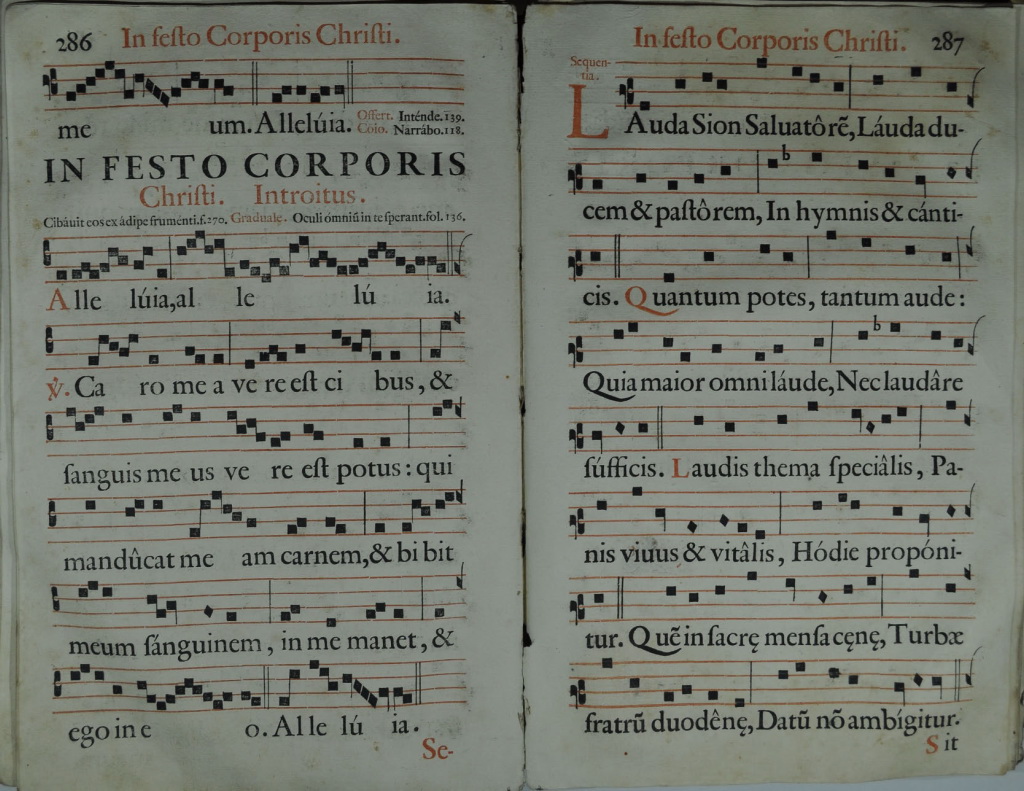 286 In festo Corporis Christi.
me um. Allelúia. Offert. Inténde. 139.
Coio. Narrábo. 118.
IN FESTO CORPORIS
Christi. Introitus.
Cibáuit eos ex ádipe frumenti. f. 270. Graduale. Oculi ómniū in te sperant. fol. 136.
Alle lúia, al le lú ia.
℣. Ca ro me a ve re est ci bus, &
sanguis me us ve re est potus: qui
mandûcat me am carnem, & bi bit
meum sánguinem, in me manet, &
ego in e o. Al le lú ia.
Se-
In festo Corporis Christi. 287
Sequen-
tia.
LAuda Sion Saluatôrē, Láuda du-
cem & pastôrem, In hymnis & cánti-
cis. Quantum potes, tantum aude:
Quia maior omni láude, Nec laudâre
súfficis. Laudis thema speciâlis, Pa-
nis viuus & vitâlis, Hódie propóni-
tur. Quē in sacrę mensa cęnę, Turbæ
fratrū duodênę, Datū nō ambígitur.
Sit